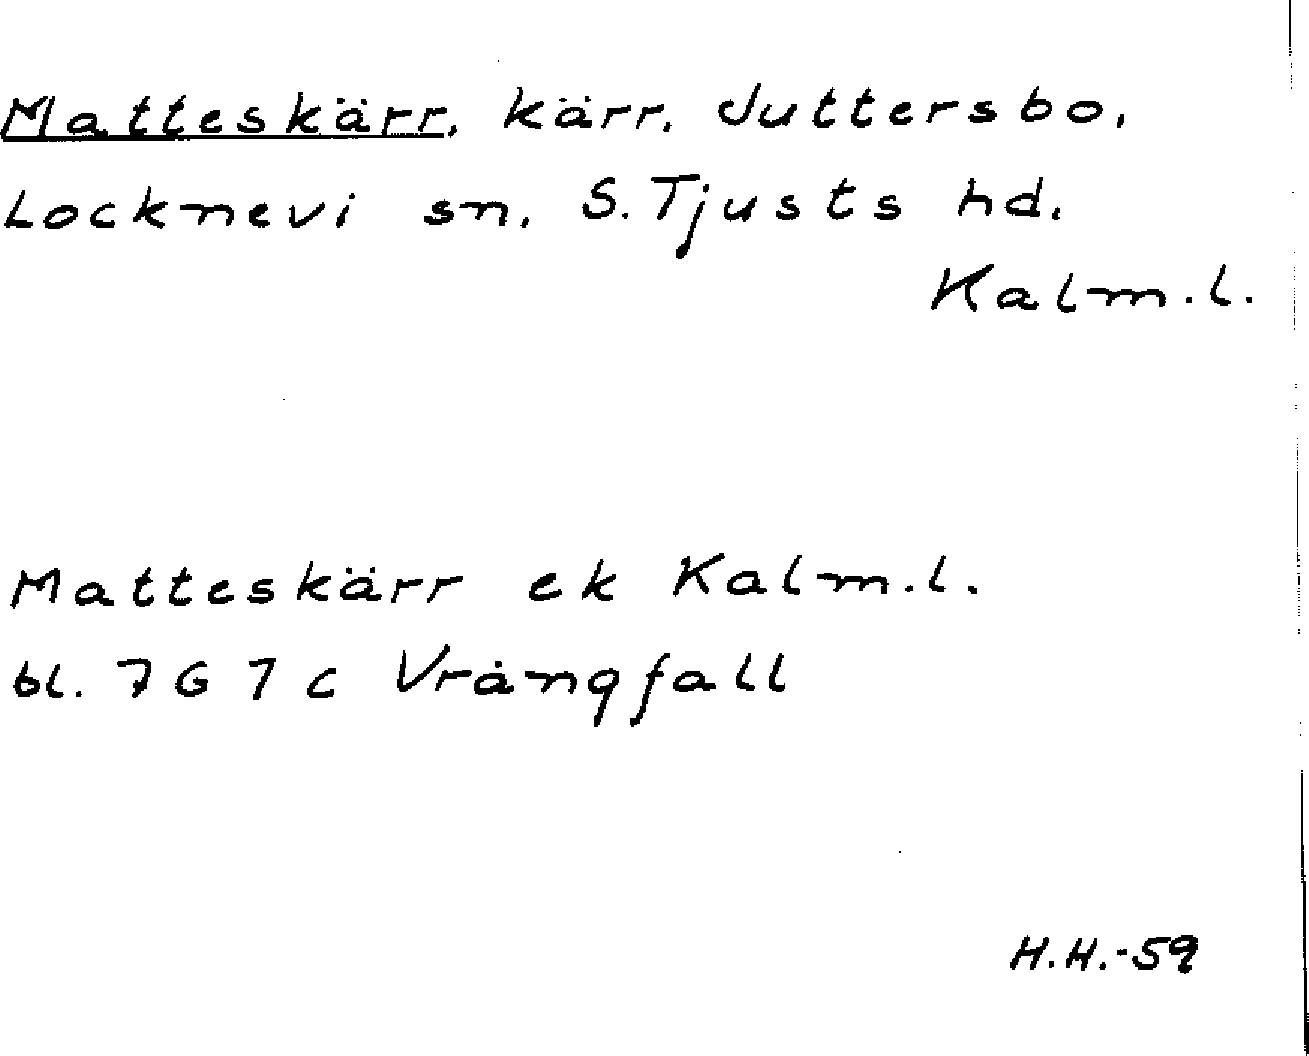 Matteskärr, kärr, Juttersbo,
Locknevi sn, S. Tjusts hd.
Kalm.l.
Matteskärr ek Kalm.l.
bl. 7 G 7 c Vrångfall
H.H.-59